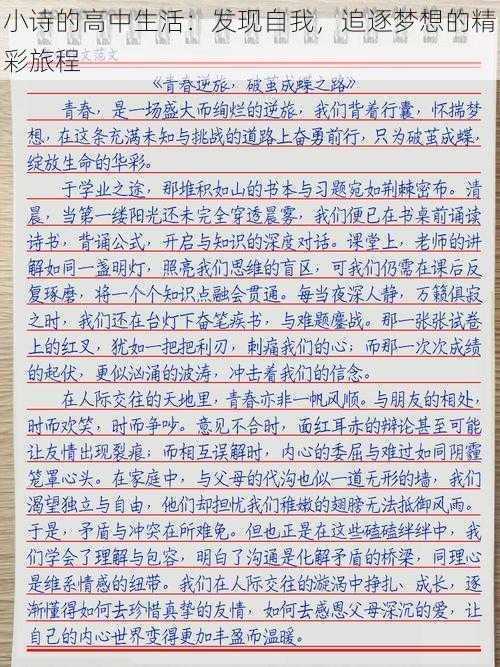 小诗的高中生活：发现自我，追逐梦想的精
彩旅程
文范文
《青春逆旅，破茧成蝶之路》
青春，是一场盛大而绚烂的逆旅，我们背着行囊，怀揣梦
想，在这条充满未知与挑战的道路上奋勇前行，只为破茧成蝶，
绽放生命的华彩。
于学业之途，那堆积如山的书本与习题宛如荆棘密布。清
晨，当第一缕阳光还未完全穿透晨雾，我们便已在书桌前诵读
诗书，背诵公式，开启与知识的深度对话。课堂上，老师的讲
解如同一盏明灯，照亮我们思维的盲区，可我们仍需在课后反
复琢磨，将一个个知识点融会贯通。每当夜深人静，万籁俱寂
之时，我们还在台灯下奋笔疾书，与难题鏖战。那一张张试卷
上的红叉，犹如一把把利刃，刺痛我们的心；而那一次次成绩
的起伏，更似汹涌的波涛，冲击着我们的信念。
在人际交往的天地里，青春亦非一帆风顺。与朋友的相处，
时而欢笑，时而争吵。意见不合时，面红耳赤的辩论甚至可能
让友情出现裂痕；而相互误解时，内心的委屈与难过如同阴霾
笼罩心头。在家庭中，与父母的代沟也似一道无形的墙，我们
渴望独立与自由，他们却担忧我们稚嫩的翅膀无法抵御风雨。
于是，矛盾与冲突在所难免。但也正是在这些磕磕绊绊中，我
们学会了理解与包容，明白了沟通是化解矛盾的桥梁，同理心
是维系情感的纽带。我们在人际交往的漩涡中挣扎、成长，逐
渐懂得如何去珍惜真挚的友情，如何去感恩父母深沉的爱，让
自己的内心世界变得更加丰盈而温暖。